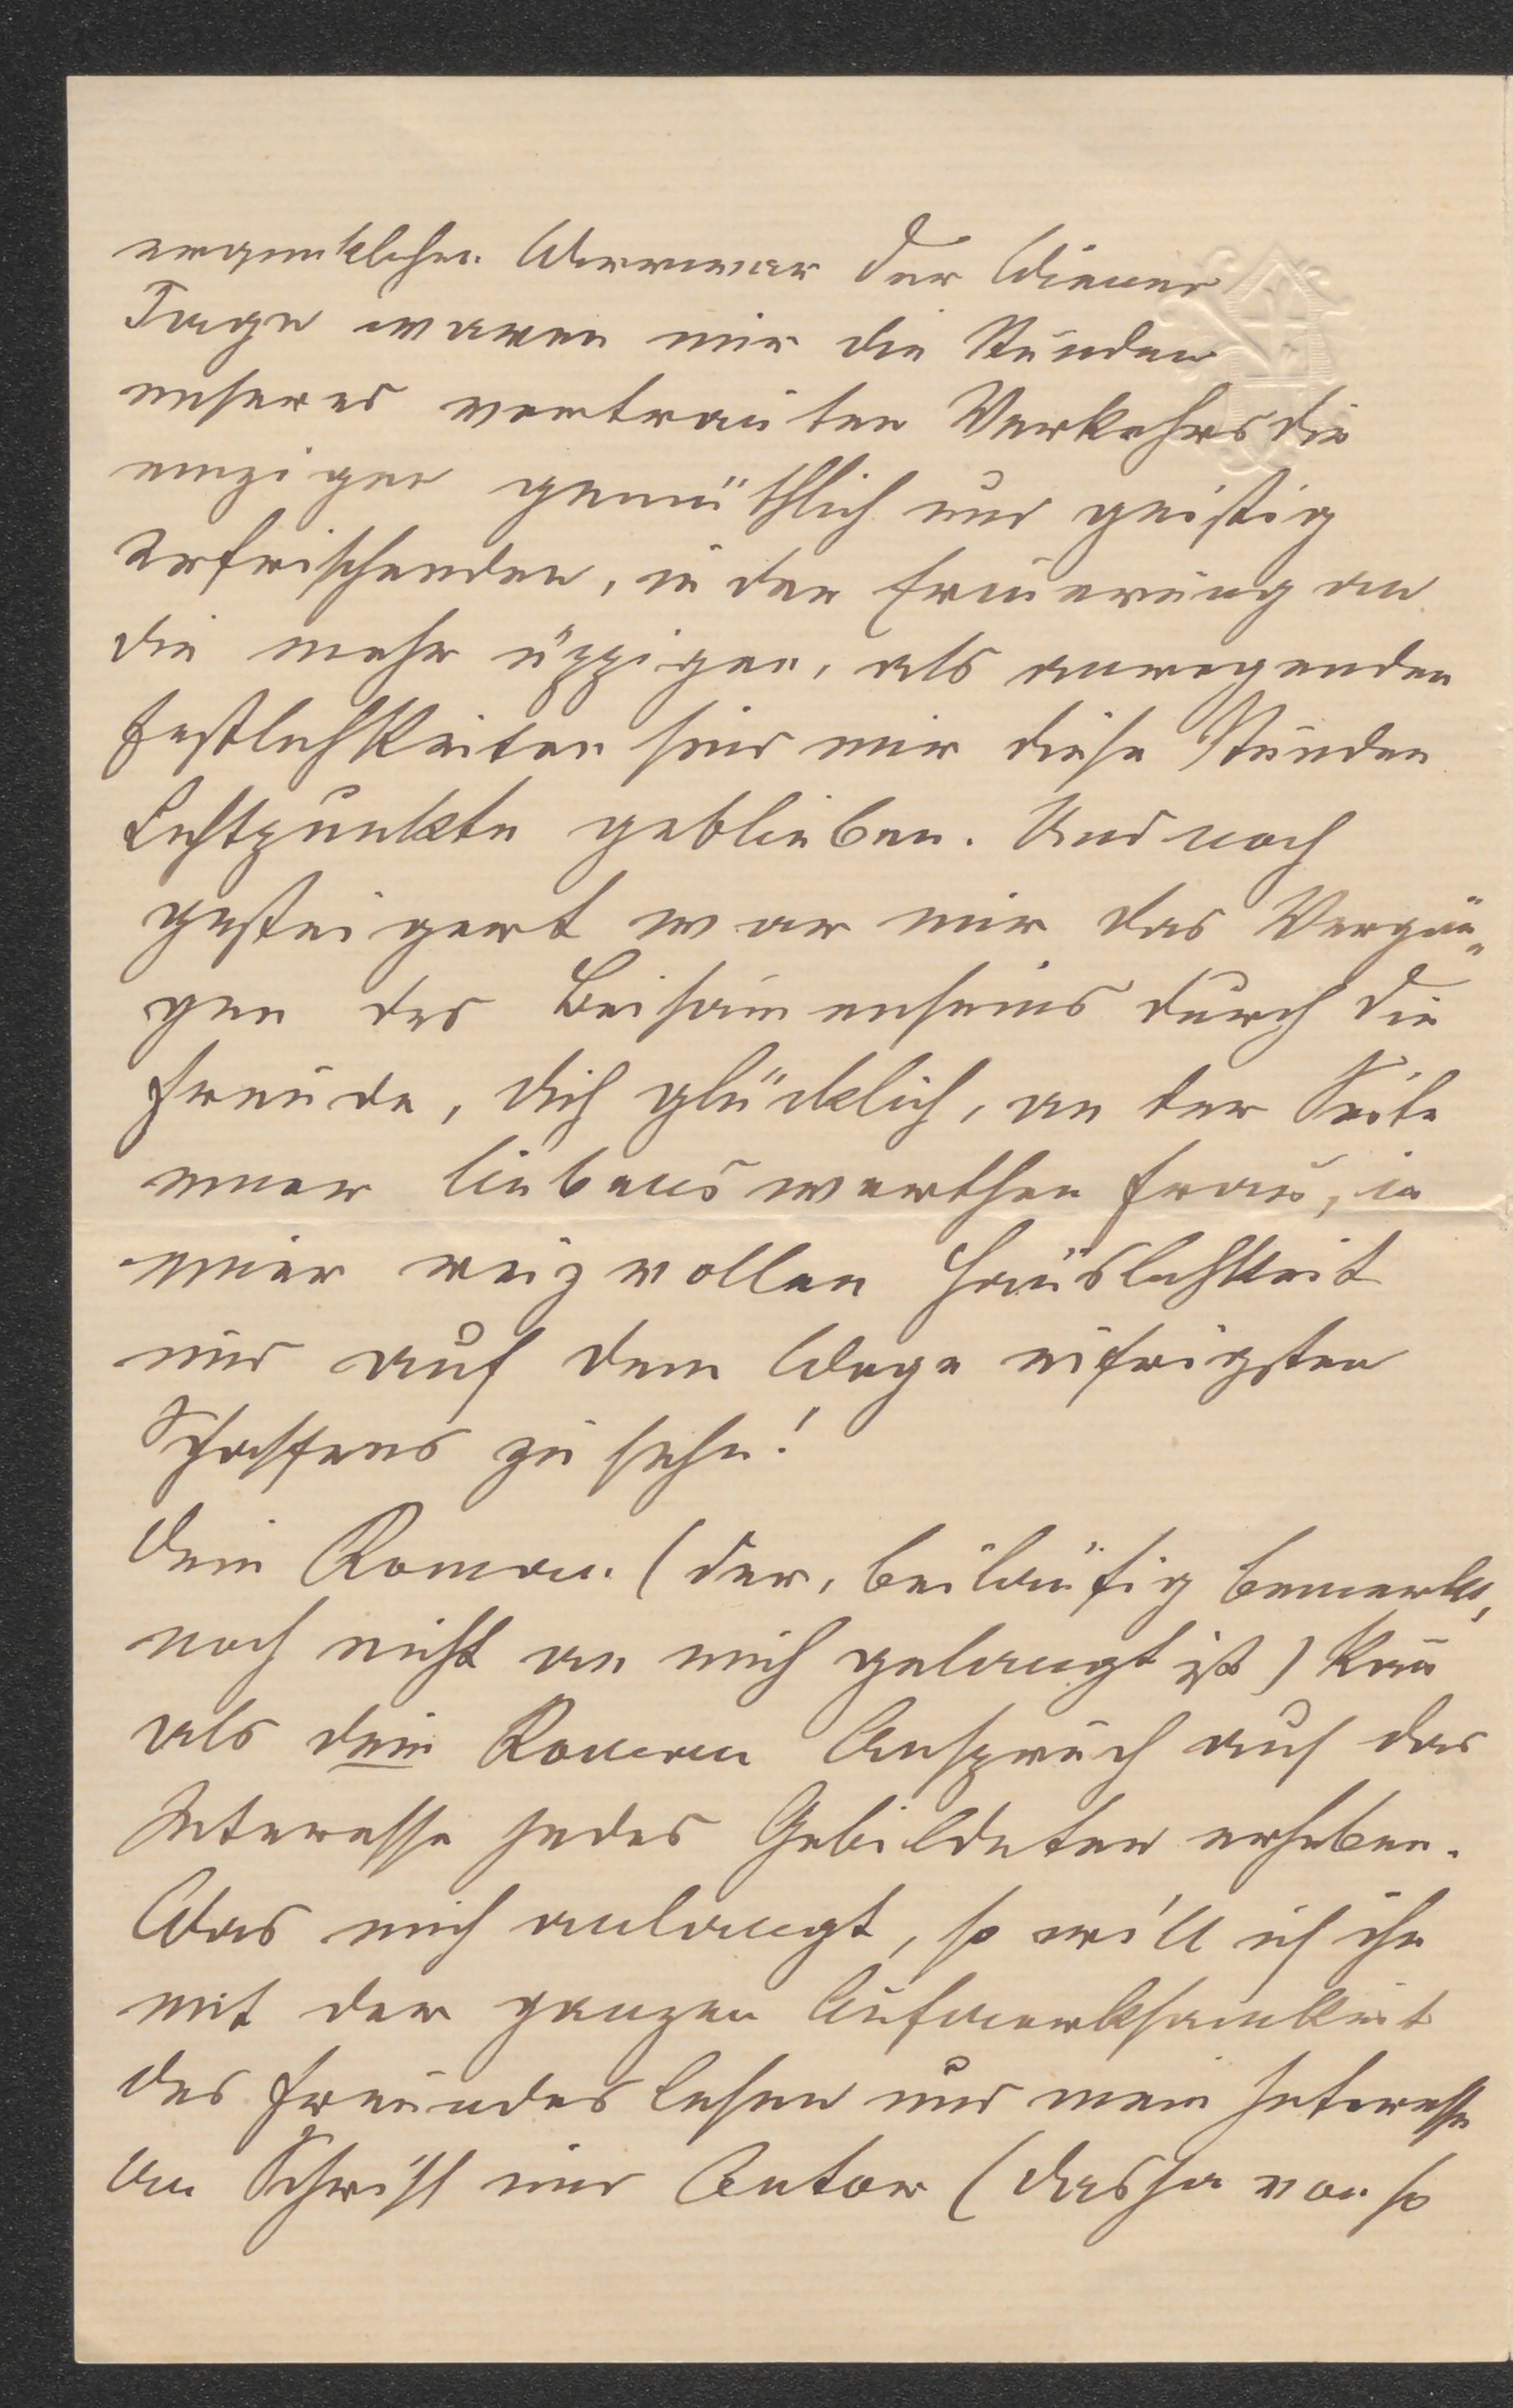 erquicklichen Wirrwarr der Wiener
Tage waren mir die Stunden
unseres vertrauten Verkehrs die
einzigen gemüthlich und geistig
erfrischenden, in der Erinnerung an
die mehr üppigen, als anregenden
Festlichkeiten sind mir diese Stunden
Lichtpunkte geblieben. Und noch
gesteigert war mir das Vergnü„
gen des Beisam̅enseins durch die
Freude, dich glücklich, an der Seite
einer liebenswerthen Frau, in
einer reizvollen Häuslichkeit
und auf dem Wege eifrigsten
Schaffens zu sehn!
Dein Roman (der, beiläufig bemerkt,
noch nicht an mich gelangt ist) kan̅
als dein Roman Anspruch auf das
Interesse jedes Gebildeten erheben.
Was mich anlangt, so will ich ihn
mit der ganzen Aufmerksamkeit
des Freundes lesen und mein Interesse
an Schrift und Autor (dessen von so